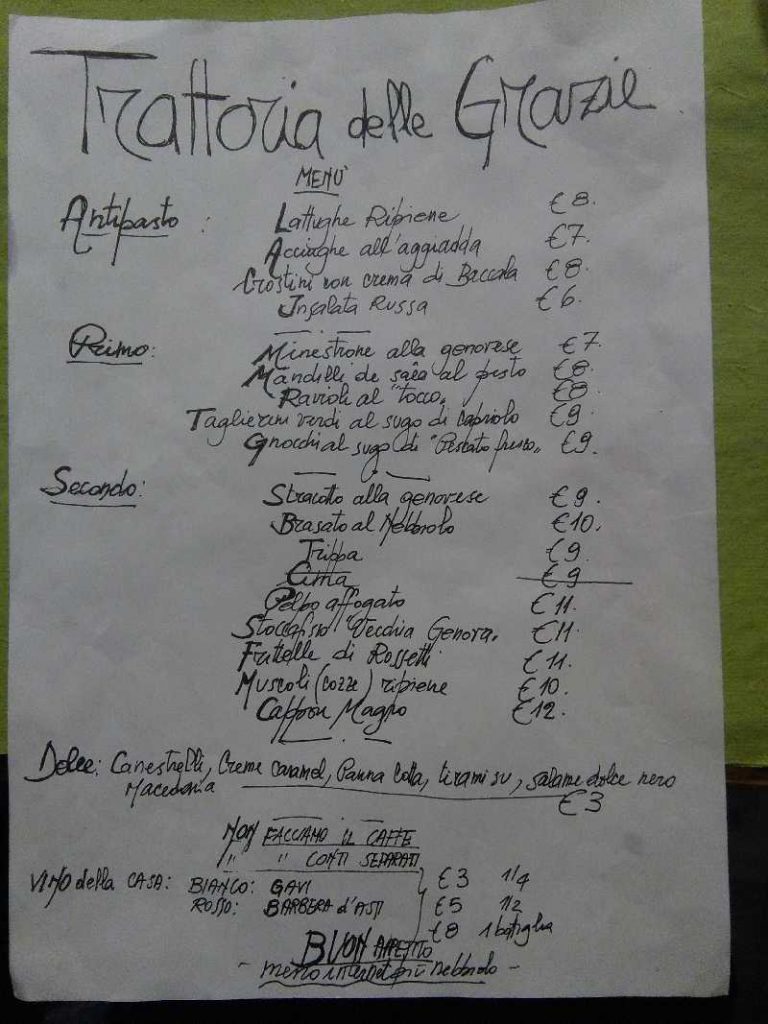 Trattoria delle Grazie
MENU'
Antipasto : Lattughe Ripiene €8.
Acciughe all'aggiadda €7.
Crostini con crema di Baccala €8.
Insalata Russa €6.
Primo: Minestrone alla genovese €7.
Mandilli de sâea al pesto €8.
Ravioli al "tocco" €8.
Taglierini verdi al sugo di capriolo €9.
Gnocchi al sugo di "Pescato fresco" €9.
Secondo: Stracotto alla genovese €9.
Brasato al Nebbiolo €10.
Trippa €9.
Cima €9
Polpo affogato €11.
Stoccafisso "Vecchia Genova" €11.
Frittelle di Rossetti €11.
Muscoli (cozze) ripiene €10.
Cappon Magro €12.
Dolce: Canestrelli, Creme caramel, Panna Cotta, tirami su, salame dolce nero
Macedonia €3
NON FACCIAMO IL CAFFE
" " CONTI SEPARATI
VINO della CASA: BIANCO: GAVI €3 1/4
ROSSO: BARBERA d'ASTI €5 1/2
€8 1 bottiglia
BUON APPETITO
- meno internet più nebbiolo -